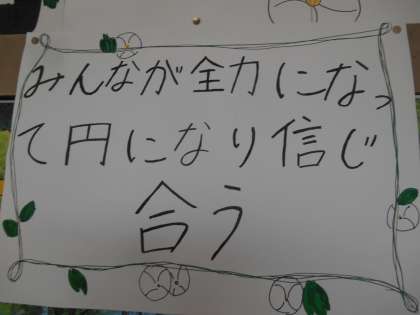 みんなが全力になっ
て円になり信じ
合う